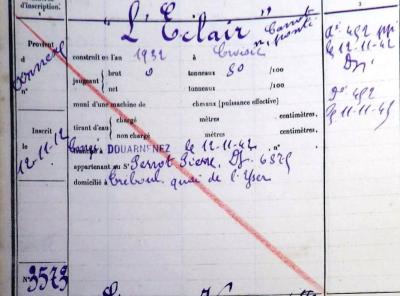 d'inscription.
"L'Eclair" Canot non ponté
Provient
d
n°
construit en l'an 1932 à
jaugeant brut 0 tonneaux 80 /100
net tonneaux /100
muni d'une machine de chevaux (puissance effective)
tirant d'eau chargé mètres centimètres,
non chargé mètres centimètres.
Inscrit
le 12-11-42
à DOUARNENEZ le 12-11-42 n°
appartenant au Sr Perrot Pierre, Dz 6875
domicilié à Tréboul quai de l'Yser
N° 3573
n° 492
le 12-11-42
Dz
n° 492